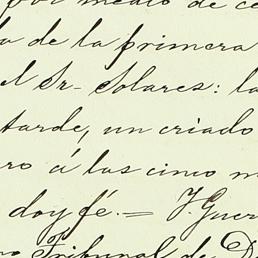 por medio de ce
a de la primera
el Sr- Solares: la
tarde, un criado
ro á las cinco m
doy fé.= J. Guer
Tribunal de D